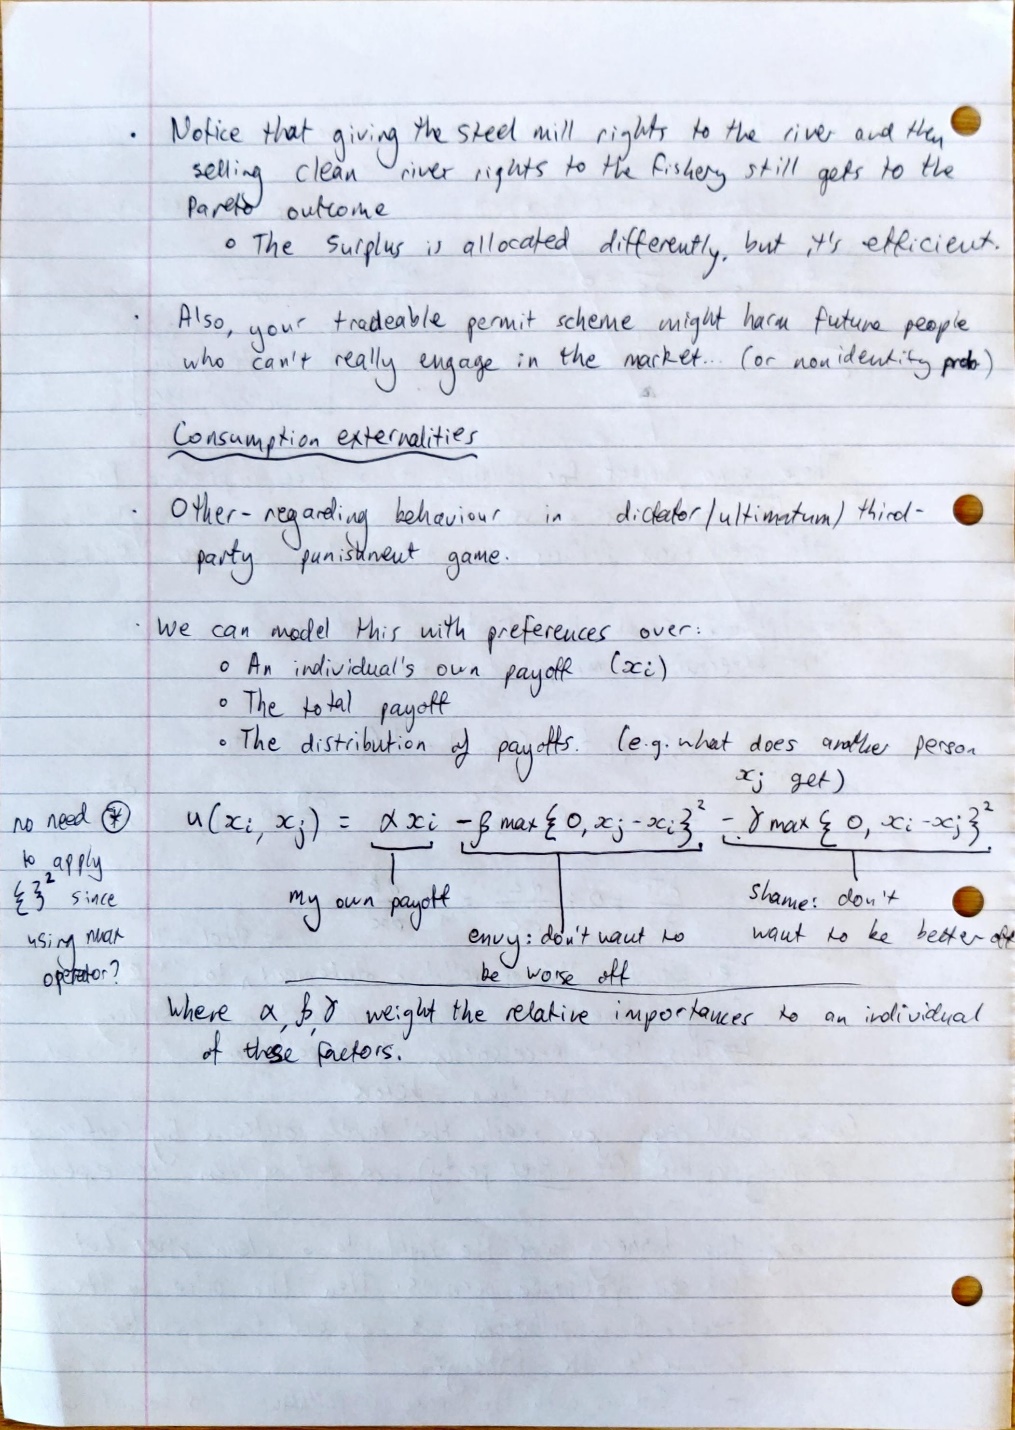 · Notice that giving the steel mill rights to the river and then
selling clean river rights to the fishery still gets to the
Pareto outcome
o The surplus is allocated differently, but it's efficient.
· Also, your tradeable permit scheme might harm future people
who can't really engage in the market... (or nonidentity prob)
Consumption externalities
· Other-regarding behaviour in dictator/ultimatum/third-
party punishment game.
· We can model this with preferences over:
o An individual's own payoff (xi)
o The total payoff
o The distribution of payoffs. (e.g. what does another person
xj get)
u(xi, xj) = αxi - β max{0, xj-xi}² - γ max{0, xi-xj}²
my own payoff
envy: don't want to
be worse off
shame: don't
want to be better off
no need (*)
to apply
{}² since
using max
operator?
Where α, β, γ weight the relative importances to an individual
of these factors.